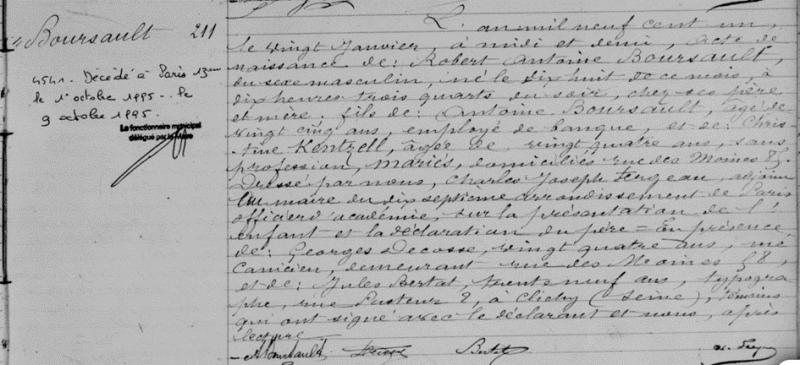 Boursault 211
4541. Décédé à Paris 13ème
le 1er octobre 1995. Le
9 octobre 1995.
Le fonctionnaire municipal
délégué par le Maire
L'an mil neuf cent un,
le vingt Janvier, à midi et demi, acte de
naissance de: Robert Antoine Boursault,
du sexe masculin, né le dix huit de ce mois, à
dix heures trois quarts du soir, chez ses père
et mère, fils de: Antoine Boursault, âgé de
vingt cinq ans, employé de banque, et de: Chris
tine Kentzell, âgée de vingt quatre ans, sans
profession, mariés, domiciliés rue des Moines 8
Dressé par nous, Charles Joseph adjoint
au maire du dix septième arrondissement de Paris
officier d'académie, sur la présentation de l'
enfant et la déclaration du père = En présence
de: Georges Decosse, vingt quatre ans, mé
canicien, demeurant rue des Moines 58,
et de: Jules Bertat, trente neuf ans, typogra
phe, rue Pasteur 8, à Clichy (Seine), témoins
qui ont signé avec le déclarant et nous, après
lecture
ABoursault